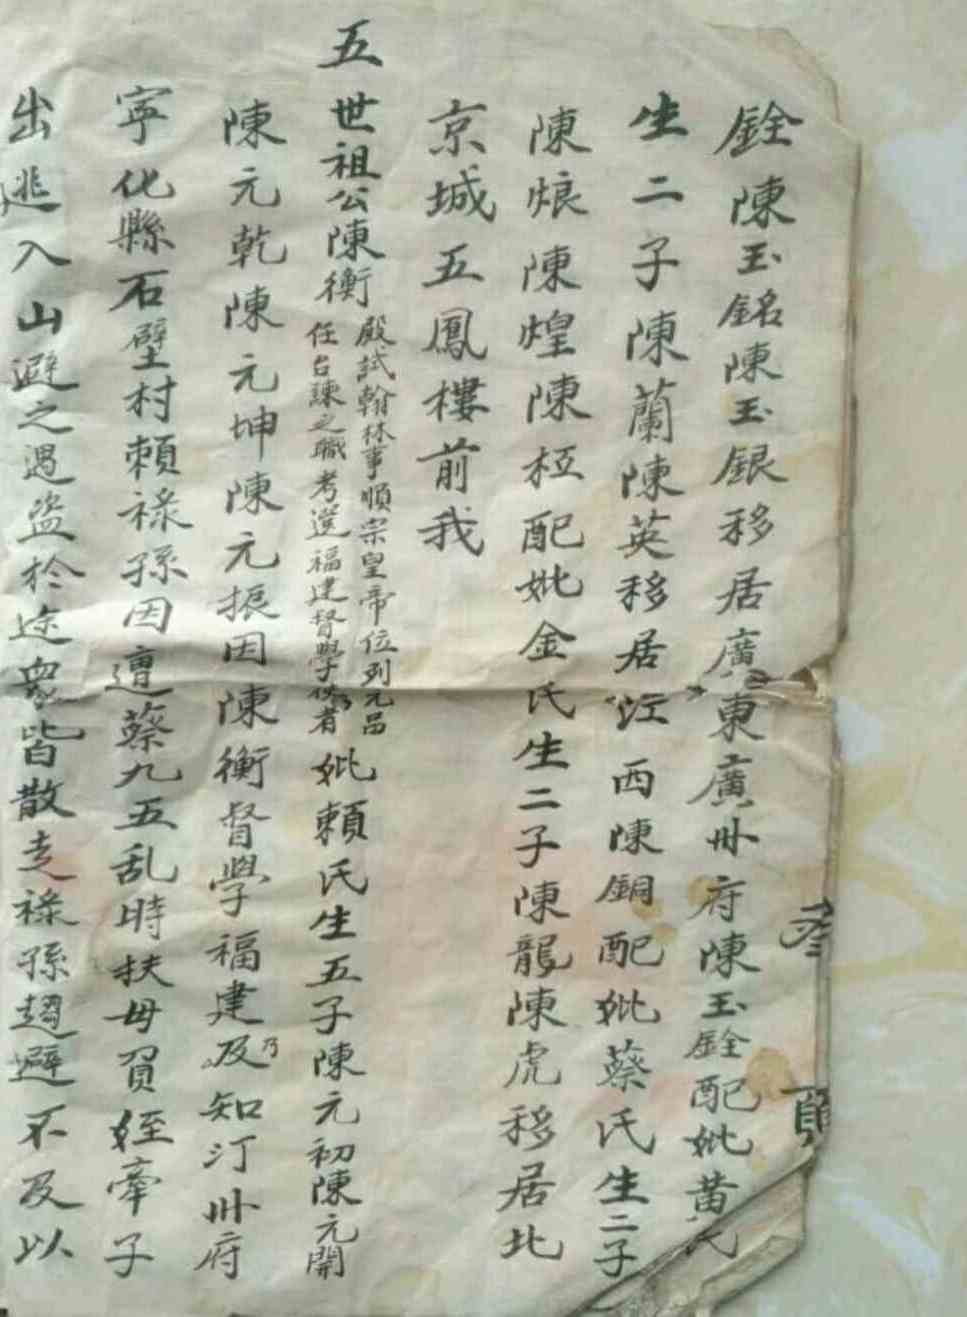 銓陳玉銘陳玉銀移居廣東廣州府陳玉銓配妣黄氏
生二子陳蘭陳英移居江西陳銅配妣蔡氏生二子
陳烺陳煌陳桓配妣金氏生二子陳龍陳虎移居北
京城五鳳樓前我
五世祖公陳衡
殿試翰林事順宗皇帝位列元吕
任台諫之職考選福建督學使者
妣賴氏生五子陳元初陳元開
陳元乾陳元坤陳元振因陳衡督學福建及乃知汀州府
寧化縣石壁村賴祿孫因遭蔡九五乱時扶母負姪牽子
出逃入山避之遇盜於途衆皆散走祿孫趨避不及以
叁